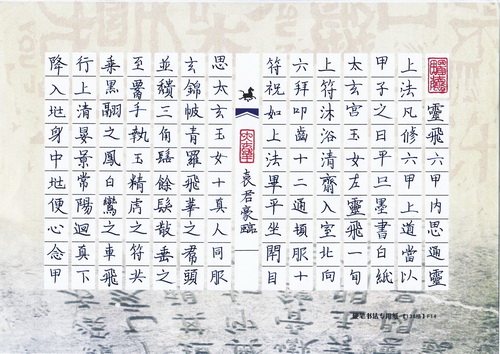 靈飛六甲內思通靈
上法凡修六甲上道當以
甲子之日平旦墨書白紙
太玄宮玉女左靈飛一旬
上符沐浴清齋入室北向
六拜叩齒十二通頓服十
符祝如上法畢平坐閉目
袁君豪臨
思太玄玉女十真人同服
玄錦帔青羅飛華之裙頭
並穨三角髻餘髮散垂之
至腰手執玉精虎之符共
乘黑翮之鳳白鸞之車飛
行上清晏景常陽迴真下
降入地身中地便心念甲
硬笔书法专用纸